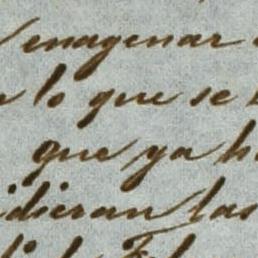 enagenar
lo que se
que ya h
dieran las